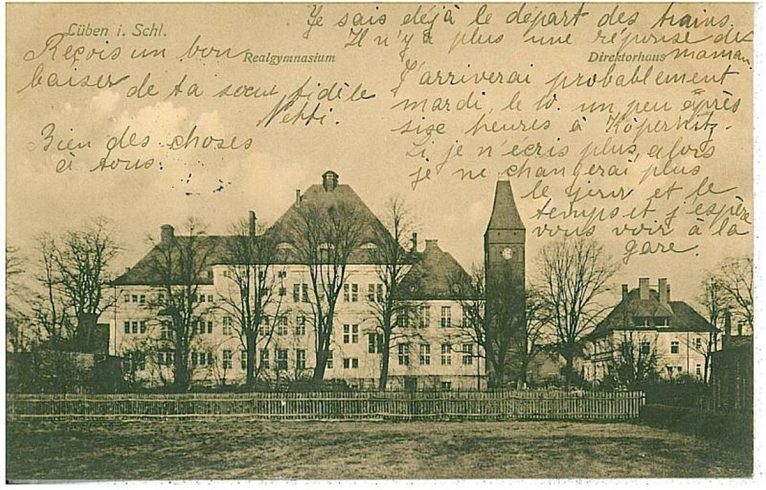 Lüben i. Schl.
Realgymnasium
Direktorhaus
Je sais déjà le départ des trains.
Il n'y a plus une réponse de
maman.
J'arriverai probablement
mardi, le 10. un peu après
six heures à Köpernitz.
Si je n'écris plus, alors
je ne changerai plus
le jour et le
temps et j'espère
vous voir à la
gare.
Reçois un bon
baiser de ta sœur fidèle
Netti.
Bien des choses
à tous.